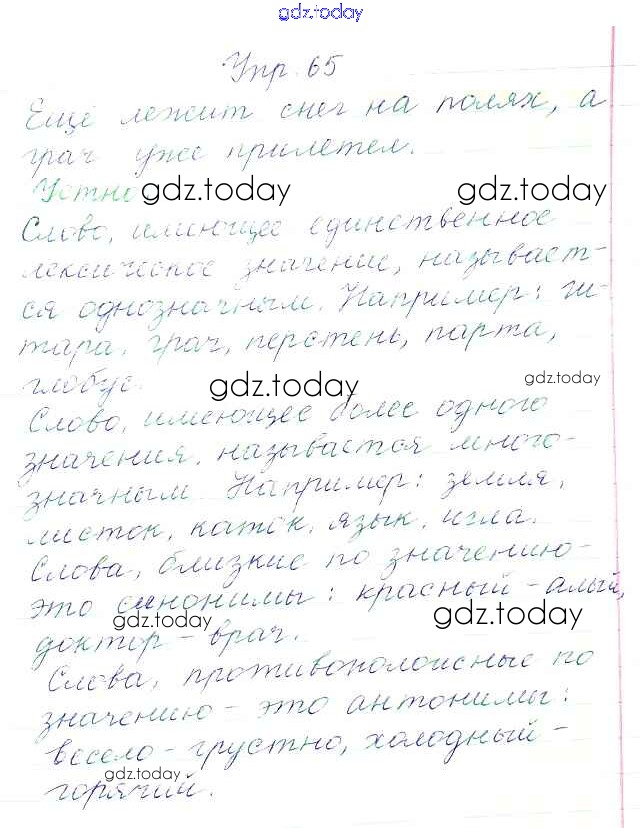 gdz.today
Упр. 65
Ещё лежит снег на полях, а
грач уже прилетел.
Устно
gdz.today
gdz.today
Слово, имеющее единственное
лексическое значение, называет-
ся однозначным. Например: ги-
тара, грач, перстень, парта,
глобус.
gdz.today
gdz.today
Слово, имеющее более одного
значения, называется много-
значным. Например: земля,
листок, каток, язык, игла.
Слова, близкие по значению -
это синонимы: красный - алый,
gdz.today
gdz.today
доктор - врач.
Слова, противоположные по
значению - это антонимы:
весело - грустно, холодный -
gdz.today
горячий.